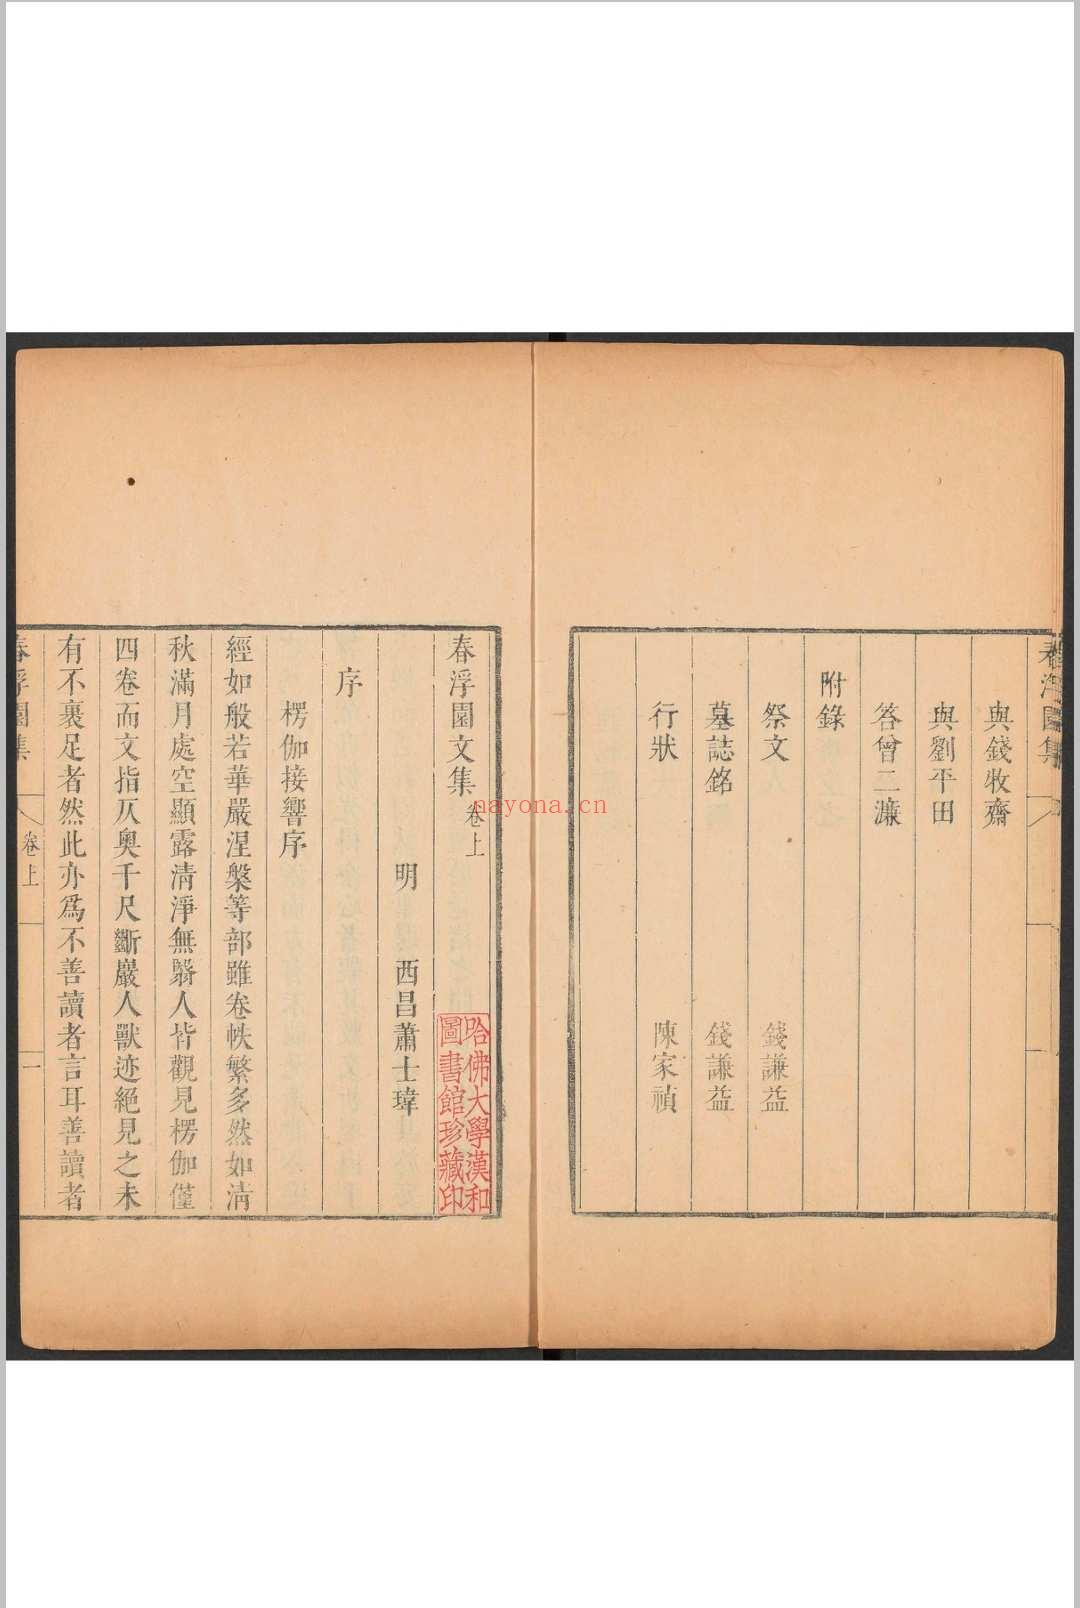 春浮園集
與錢牧齋
與劉平田
答曾二濂
附錄
祭文 錢謙益
墓誌銘 錢謙益
行狀 陳家禎
春浮園文集 卷上
哈佛大學漢和
圖書館珍藏印
明 西昌蕭士瑋
序
楞伽接響序
經如般若華嚴涅槃等部雖卷帙繁多然如淸
秋滿月處空顯露淸淨無翳人皆觀見楞伽僅
四卷而文指仄奧千尺斷巖人獸迹絕見之未
有不裹足者然此亦爲不善讀者言耳善讀者
春浮園集 卷上 一
nayona.cn